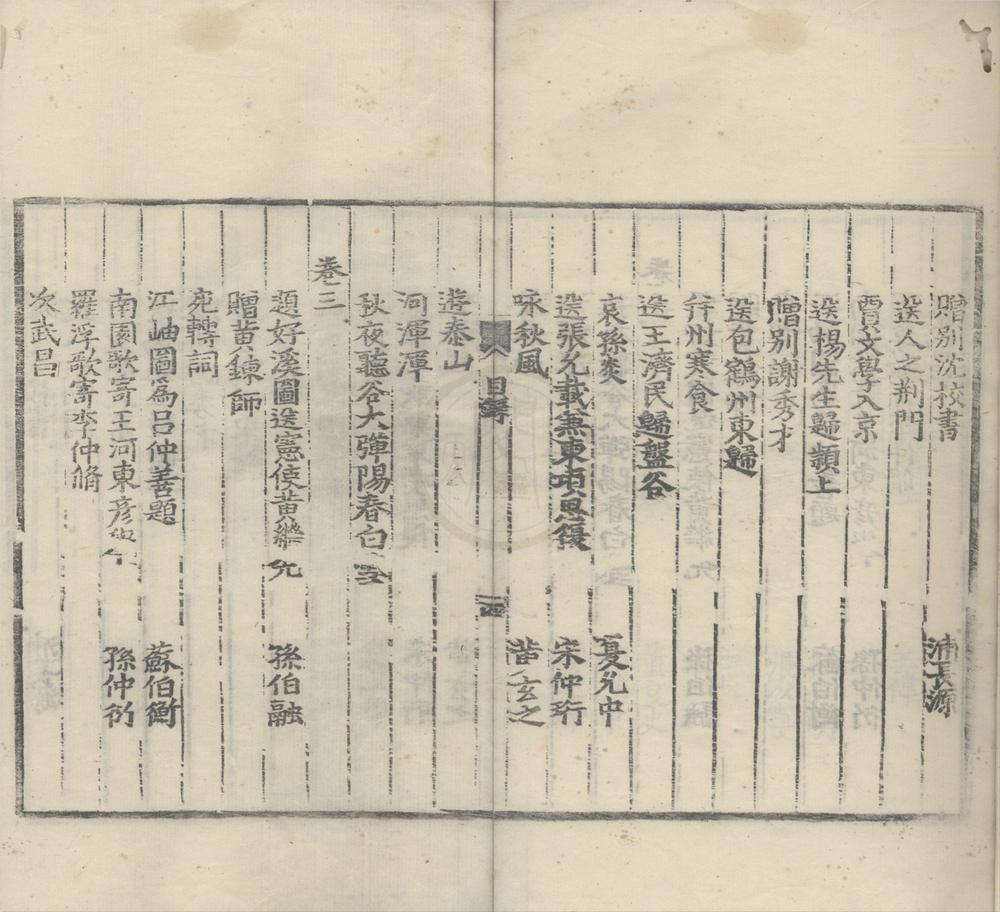 贈别沈校書 浦長源
送人之荆門
賈文學入京
送楊先生歸頴上
贈别謝秀才
送包鶴州東歸
幷州寒食
送王濟民歸盤谷
哀孫炎 夏允中
送張允載兼柬項思復 宋仲珩
咏秋風 黄玄之
目録 四
遊泰山
河渾渾
秋夜聽谷大彈陽春白雪
卷三
題好溪圖送憲使黄 允 孫伯融
贈黄鍊師
宛轉詞
江岫圖爲吕仲善題 蘇伯衡
南園歌寄王河東彦 孫仲衍
羅浮歌寄李仲脩
次武昌